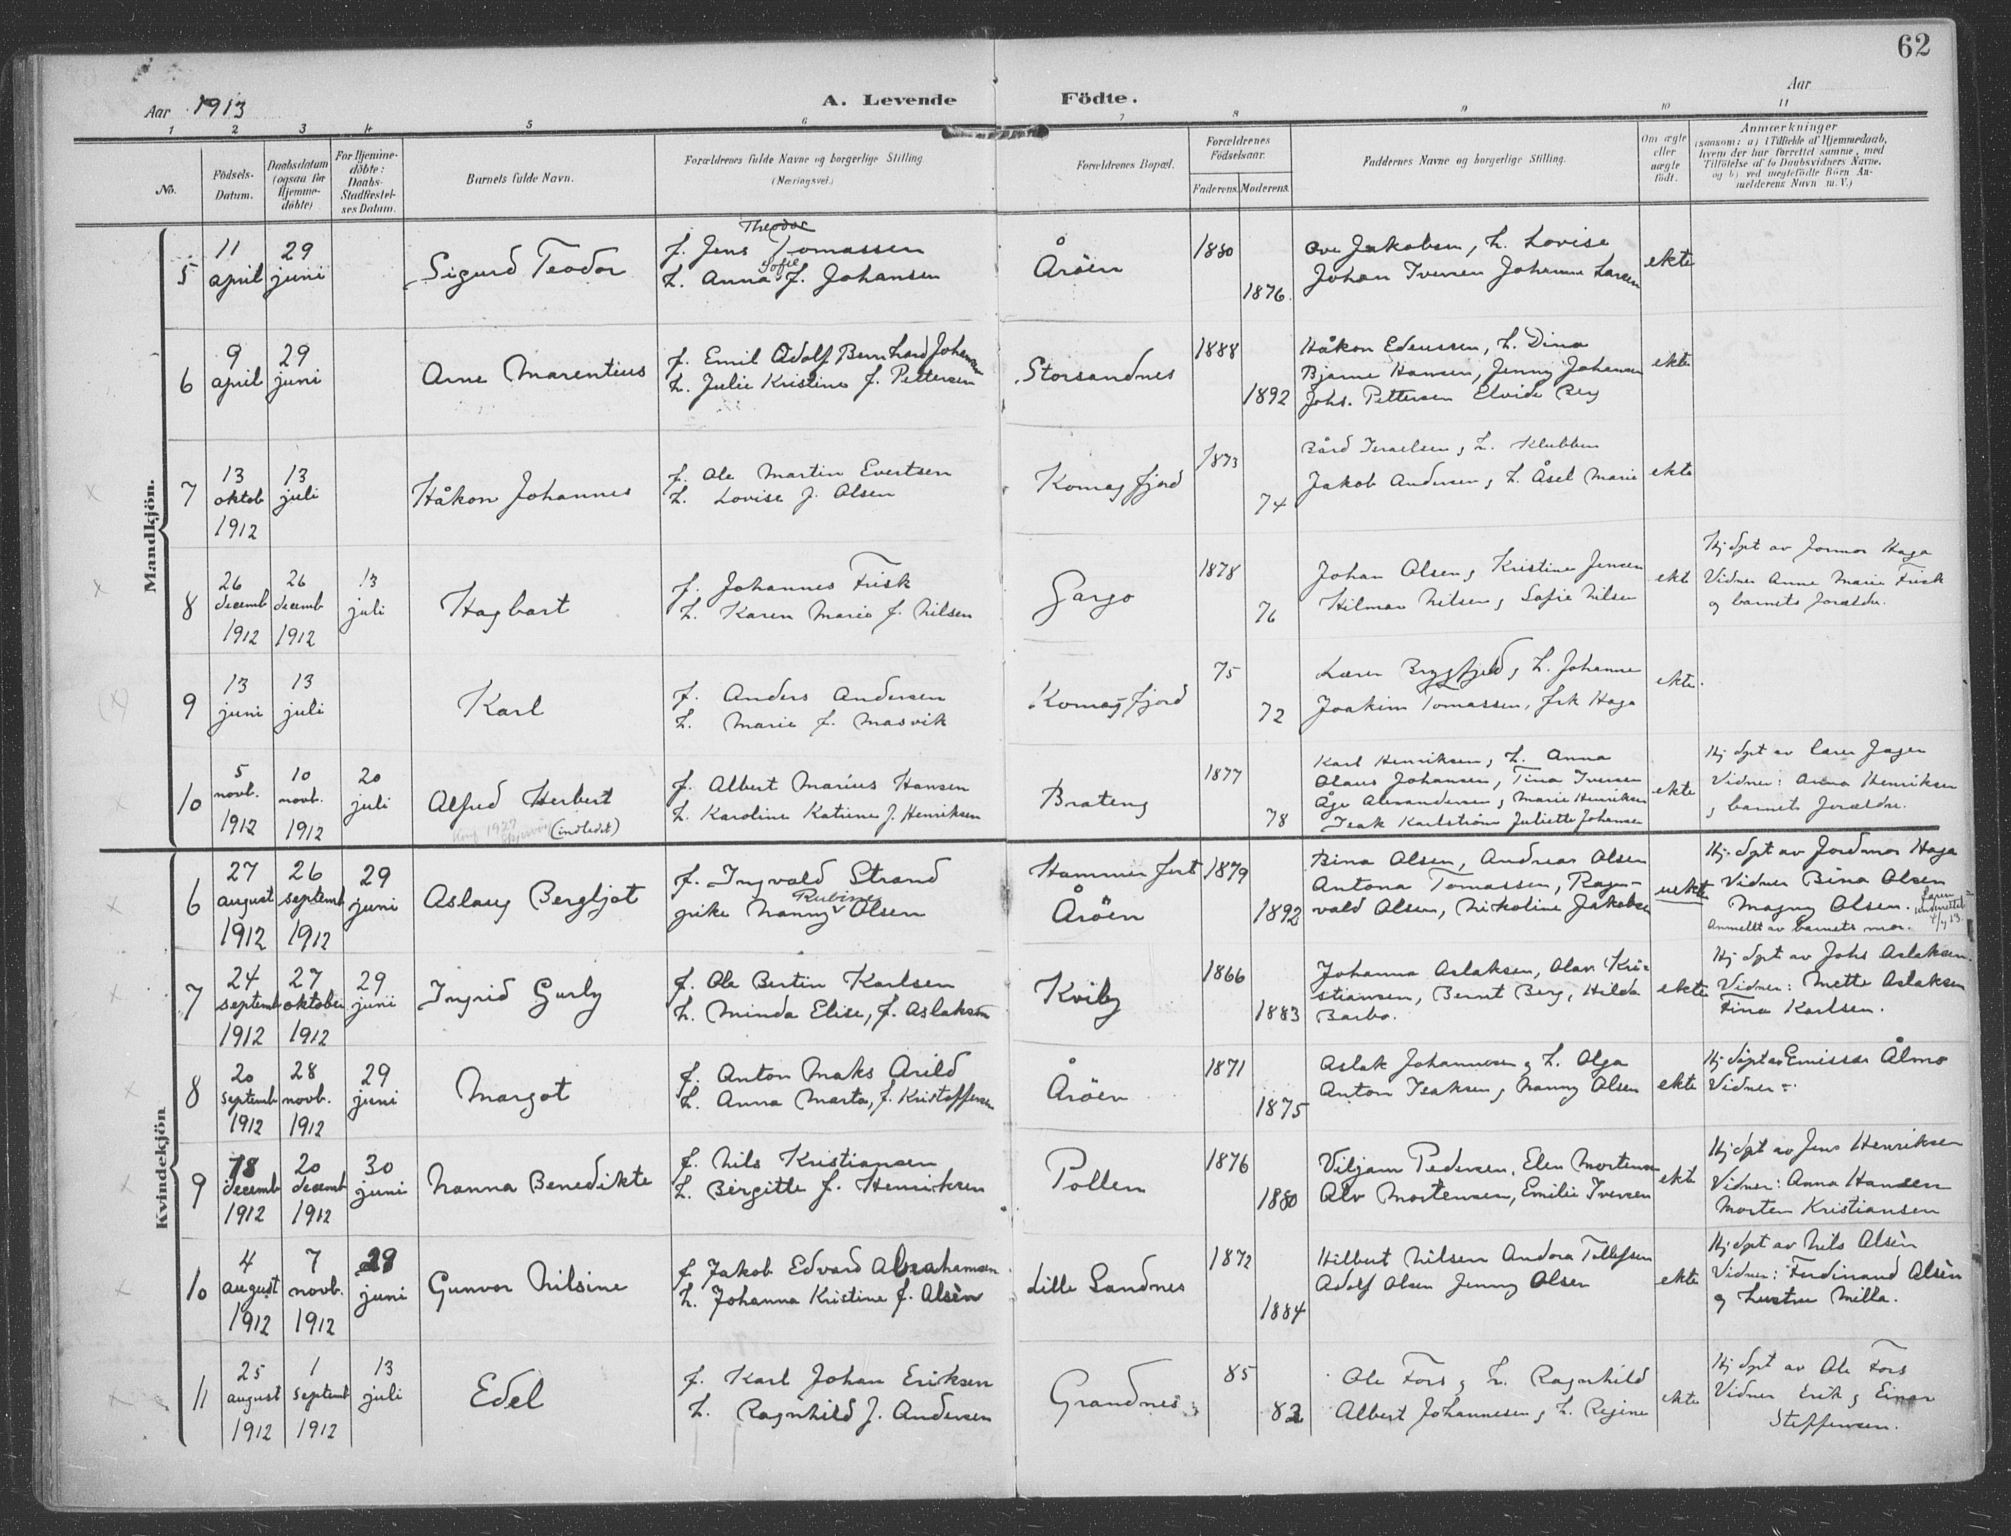 62
Aar 1913
A. Levende Födte.
Aar
1 2 3 4 5 6 7 8 9 10 11
No.
Födsels-Datum.
Daabsdatum (ogsaa for Hjemme-döbte)
For Hjemme-döbte: Daabs-Stadfæstel-ses Datum.
Barnets fulde Navn.
Forældrenes fulde Navne og borgerlige Stilling
(Næringsvei.)
Forældrenes Bopæl.
Forældrenes Födselsaar.
Faderens. Moderens.
Faddernes Navne og borgerlige Stilling.
Om ægte eller uægte födt.
Anmærkninger
(saasom: a) i Tilfælde af Hjemmedaab, hvem der har forrettet samme, med Tilföielse af to Daabsvidners Navne, og b) ved uægtefödte Börn An-melderens Navn m. V.)
Mandkjön.
5 11 april 29 juni Sigurd Teodor
f. Jens Theodor Tomassen
h. Anna Sofie f. Johansen
Åröen 1880 1876
Ove Jakobsen, h. Lovise
Johan Iversen Johanne Larsen
ekte
6 9 april 29 juni Arne Marentius
f. Emil Adolf Bernhard Johansen
h. Julie Kristine f. Pettersen
Storsandnes 1888 1892
Håkon Edenssen, h. Dina
Bjarne Hansen, Jenny Johansen
Johs. Pettersen Elvida Berg
ekte
7 13 oktob 1912 13 juli Håkon Johannes
f. Ole Martin Evertsen
h. Lovise f. Olsen
Komagfjord 1873 74
Bård Israelsen, h. Klubben
Jakob Andersen, h. Åsel Marie
ekte
8 26 decemb 1912 26 decemb 1912 13 juli Hagbart
f. Johannes Frisk
h. Karen Marie f. Nilsen
Gargo 1878 76
Johan Olsen, Kristine Jensen
Hilmar Nilsen, Sofie Nilsen
ekt
Hj dpt av Jormor Haga
Vidner Anne Marie Frisk
og barnets forældre.
9 13 juni 13 juli Karl
f. Anders Andersen
h. Marie f. Masvik
Komagfjord 75 72
Lærer Brygfjeld, h. Johanne
Joakim Tomassen, frk Haga
ekte
10 5 novb. 1912 10 novb. 1912 20 juli Alfred Herbert
(indledet)
f. Albert Marius Hansen
h. Karoline Katrine f. Henriksen
Brateng 1877 78
Karl Henriksen, h. Anna
Olaus Johansen, Tina Iversen
Åge Alexandersen, Marie Henriksen
Isak Karlström Juliette Johansen
ekte
Hj dpt av lærer Jager
Vidner: Anna Henriksen
og barnets forældre.
Kvindekjön
6 27 august 1912 26 septemb 1912 29 juni Aslaug Bergljot
f. Ingvald Strand
pike Nanny Rubine Olsen
Hammerfest Åröen 1879 1892
Bina Olsen, Andreas Olsen
Antona Tomassen, Ragn-
vald Olsen, Nikoline Jakobsen
uekte
Hj. dpt av Jordmor Haga
Vidner Bina Olsen
Magny Olsen.
Anmeldt av barnets mor.
7 24 septemb 1912 27 oktober 1912 29 juni Ingrid Gurly
f. Ole Bertin Karlsen
h. Minda Elise, f. Aslaksen
Kviby 1866 1883
Johanna Aslaksen, Olav Kri-
stiansen, Bernt Berg, Hilda
Barbo.
ekte
Hj dpt av Johs Aslaksen.
Vidner: Mette Aslaksen
Fina Karlsen.
8 20 septemb 1912 28 novb. 1912 29 juni Margot
f. Anton Maks Arild
h. Anna Marta, f. Kristoffersen
Åröen 1871 1875
Aslak Johannesen, h. Olga
Anton Isaksen, Nanny Olsen
ekte
Hj döpt av Emissær Ålmo
Vidner:
9 18 decemb 1912 20 decemb 1912 30 juni Nanna Benedikte
f. Nils Kristiansen
h. Birgitte f. Henriksen
Pollen 1876 1880
Viljam Pedersen, Elen Mortensen
Alv Mortensen, Emilie Iversen
ekt
Hj dpt av Jens Henriksen
Vidner: Anna Hansen
Morten Kristiansen
10 4 august 1912 7 novb. 1912 29 juni Gunvor Nilsine
f. Jakob Edvard Abrahamsen
h. Johanna Kristine f. Alsèn
Lille Sandnes 1872 1884
Hilbert Nilsen Andora Tollefsen
Adolf Olsen Jenny Olsen
ekte
Hj dpt av Nils Alsèn
Vidner: Ferdinand Alsèn
og hustru Milla.
11 25 august 1912 1 septemb 1912 13 juli Edel
f. Karl Johan Eriksen
h. Ragnhild f. Andersen
Grandnes 85 82
Ole Fors, h. Ragnhild
Albert Johannesen, h. Regine
ekte
Hj dpt av Ole Fors
Vidner Erik og Einar
Steffensen.